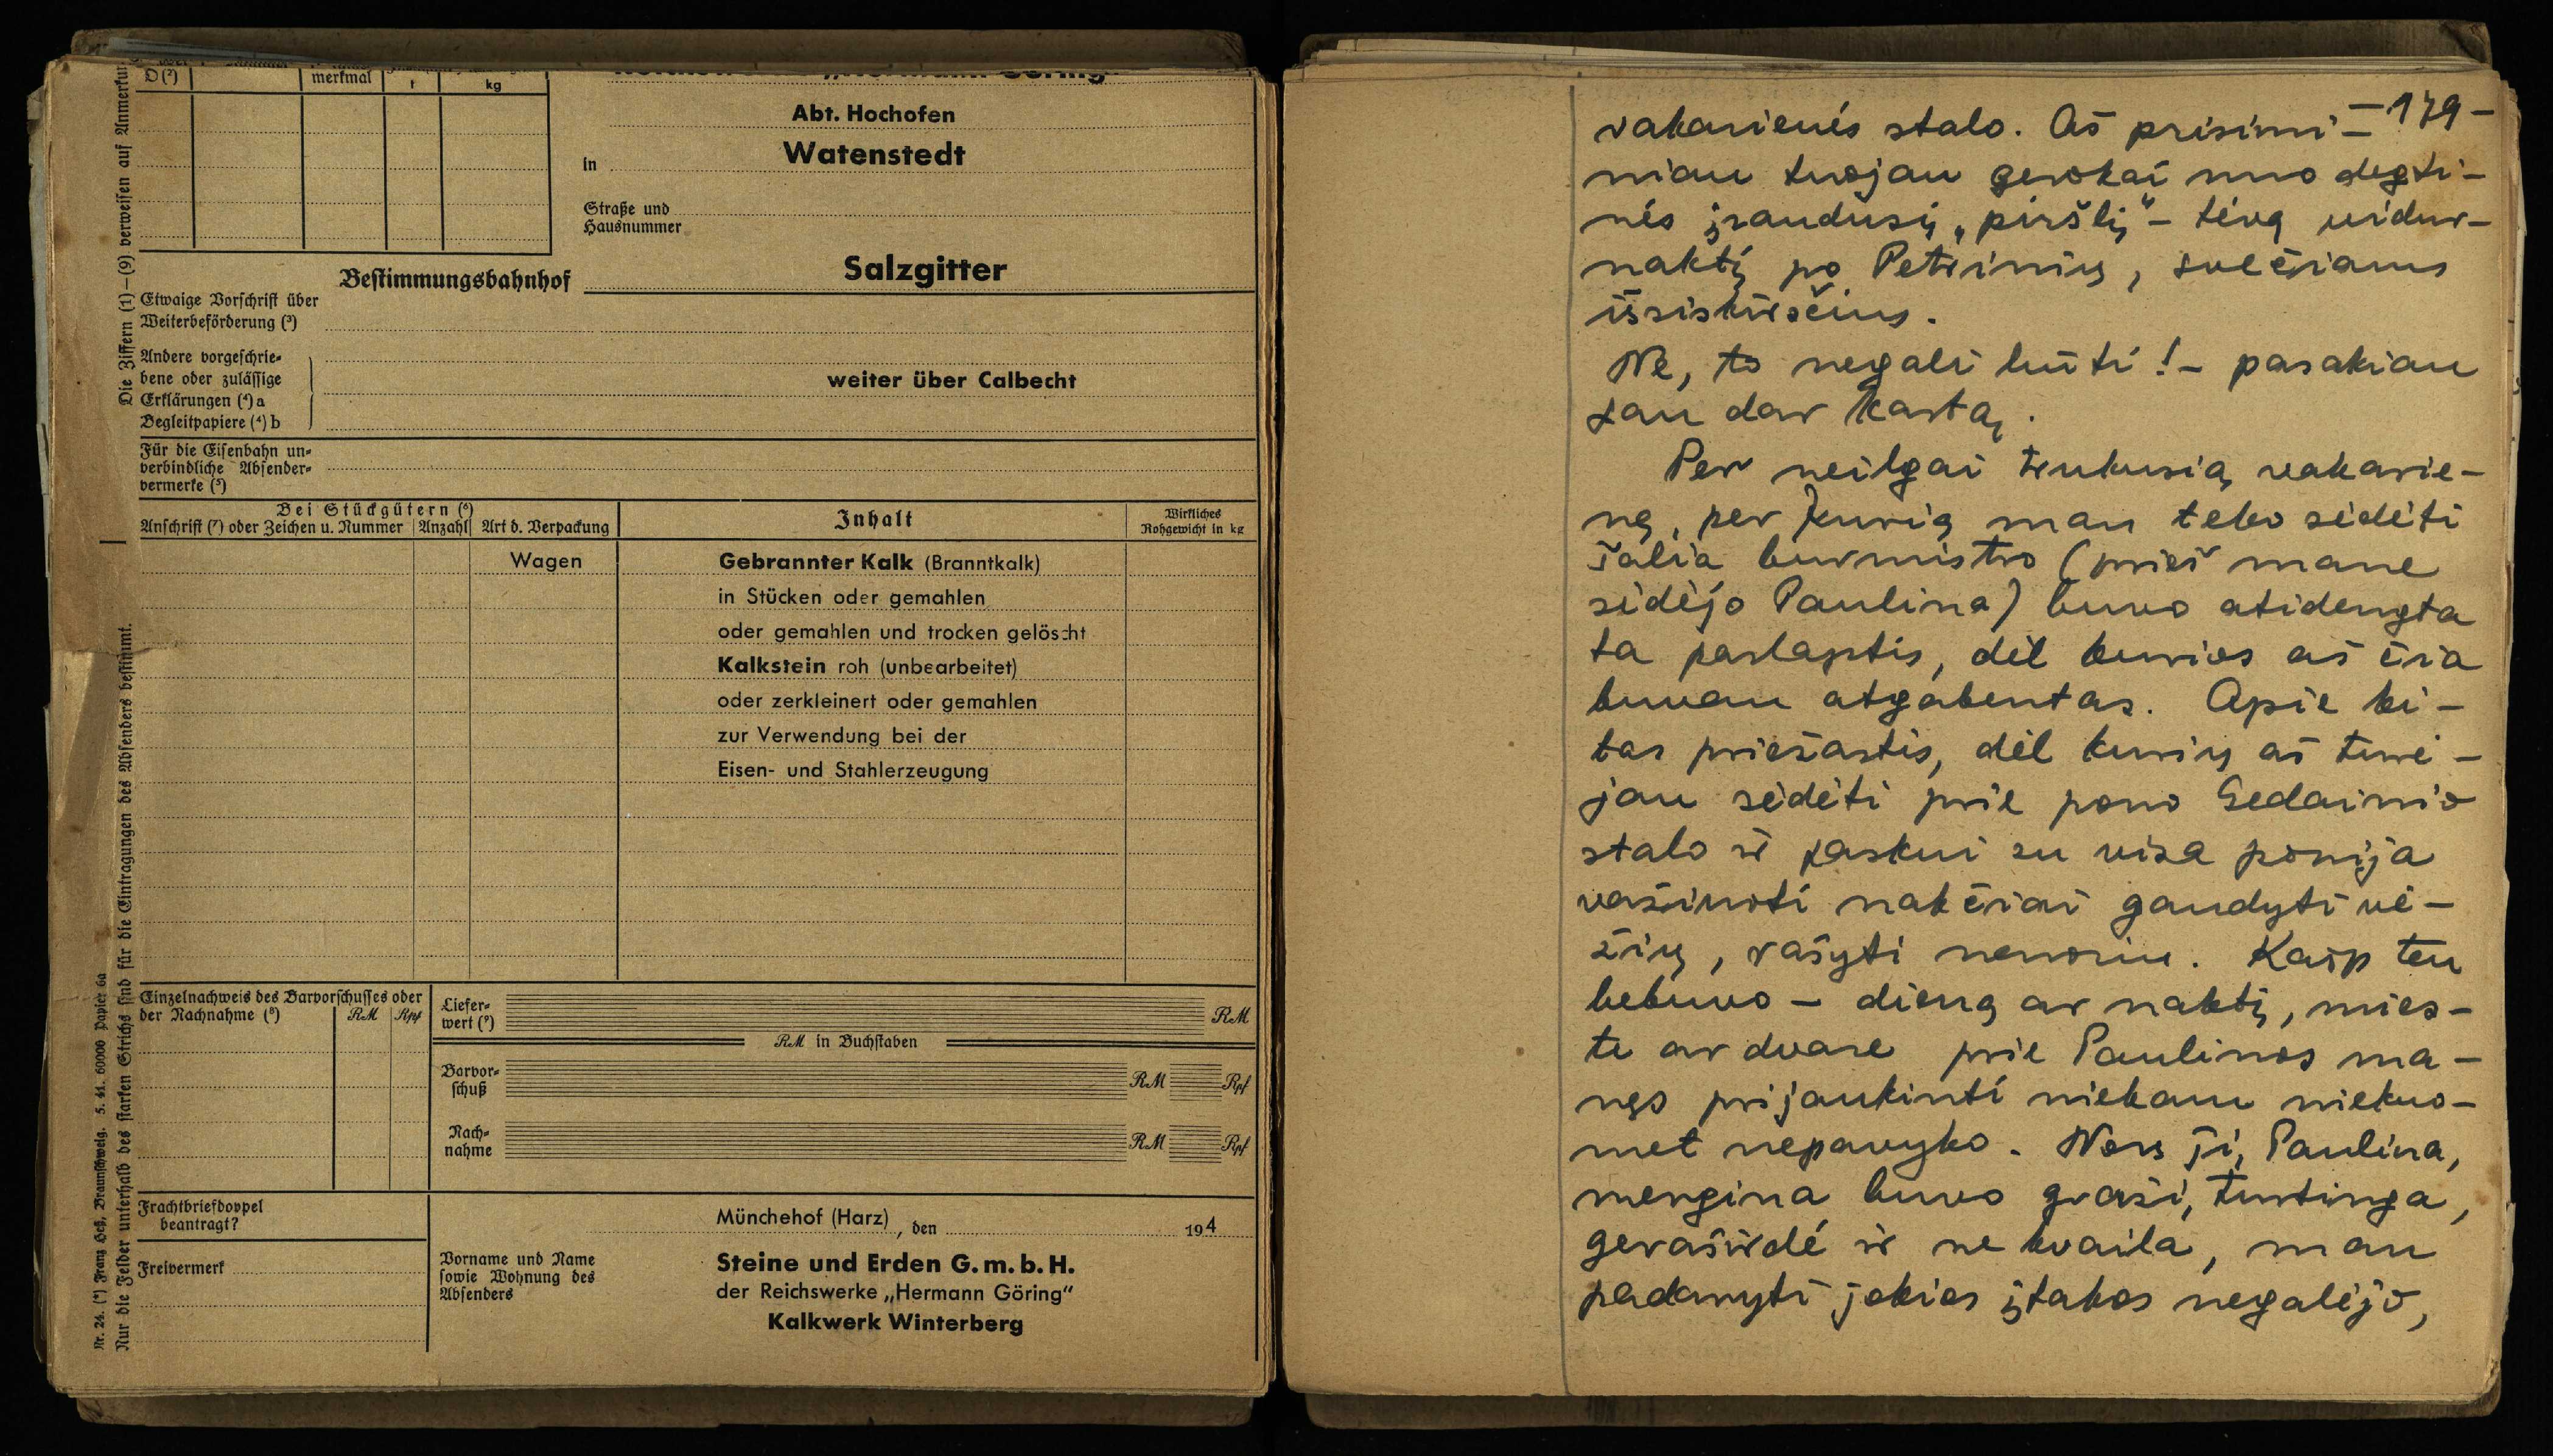 D (²)
merkmal
r
kg
Abt. Hochofen
in
Watenstedt
Straße und
Hausnummer
Bestimmungsbahnhof
Salzgitter
Etwaige Vorschrift über
Weiterbeförderung (³)
Andere vorgeschrie-
bene oder zulässige
Erklärungen (⁴) a
Begleitpapiere (⁴) b
weiter über Calbecht
Für die Eisenbahn un-
verbindliche Absender-
vermerke (⁵)
Bei Stückgütern (⁶)
Anschrift (⁷) oder Zeichen u. Nummer Anzahl Art d. Verpackung
Inhalt
Wirkliches
Rohgewicht in kg
Wagen
Gebrannter Kalk (Branntkalk)
in Stücken oder gemahlen
oder gemahlen und trocken gelöscht
Kalkstein roh (unbearbeitet)
oder zerkleinert oder gemahlen
zur Verwendung bei der
Eisen- und Stahlerzeugung
Einzelnachweis des Barvorschusses oder
der Nachnahme (⁸)
RM Rpf
Liefer-
wert (⁹)
RM
RM in Buchstaben
Barvor-
schuß
RM Rpf
Nach-
nahme
RM Rpf
Frachtbriefdoppel
beantragt?
Freivermerk
Münchehof (Harz), den 194
Vorname und Name
sowie Wohnung des
Absenders
Steine und Erden G.m.b.H.
der Reichswerke „Hermann Göring"
Kalkwerk Winterberg
Die Ziffern (1)—(9) verweisen auf Anmerkun
Nur die Felder unterhalb des starken Strichs sind für die Eintragungen des Absenders bestimmt.
Nr. 24. (*) Franz Heß, Braunschweig. 5. 41. 60000 Papier 6a
-179-
vakarienės stalo. Aš prisimi-
niau tuojau gerokai nuo degti-
nės įraudusį „piršlį" - tėvą vidur-
naktį po Petrinių, svečiams
išsiskirsčius.
Ne, to negali būti! - pasakiau
sau dar kartą.
Per neilgai trukusią vakarie-
nę, per kurią man teko sėdėti
šalia burmistro (prieš mane
sėdėjo Paulina) buvo atidengta
ta paslaptis, dėl kurios aš čia
buvau atgabentas. Apie ki-
tas priežastis, dėl kurių aš turė-
jau sėdėti prie pono Gedainio
stalo ir paskui su visa ponija
važinoti nakčiai gaudyti vė-
žių, rašyti nenoriu. Kaip ten
bebuvo - dieną ar naktį, mies-
te ar dvare prie Paulinos ma-
nęs prijaukinti niekam niekuo-
met nepavyko. Nors ji, Paulina,
mergina buvo graži, turtinga,
geraširdė ir ne kvaila, man
padaryti jokios įtakos negalėjo,